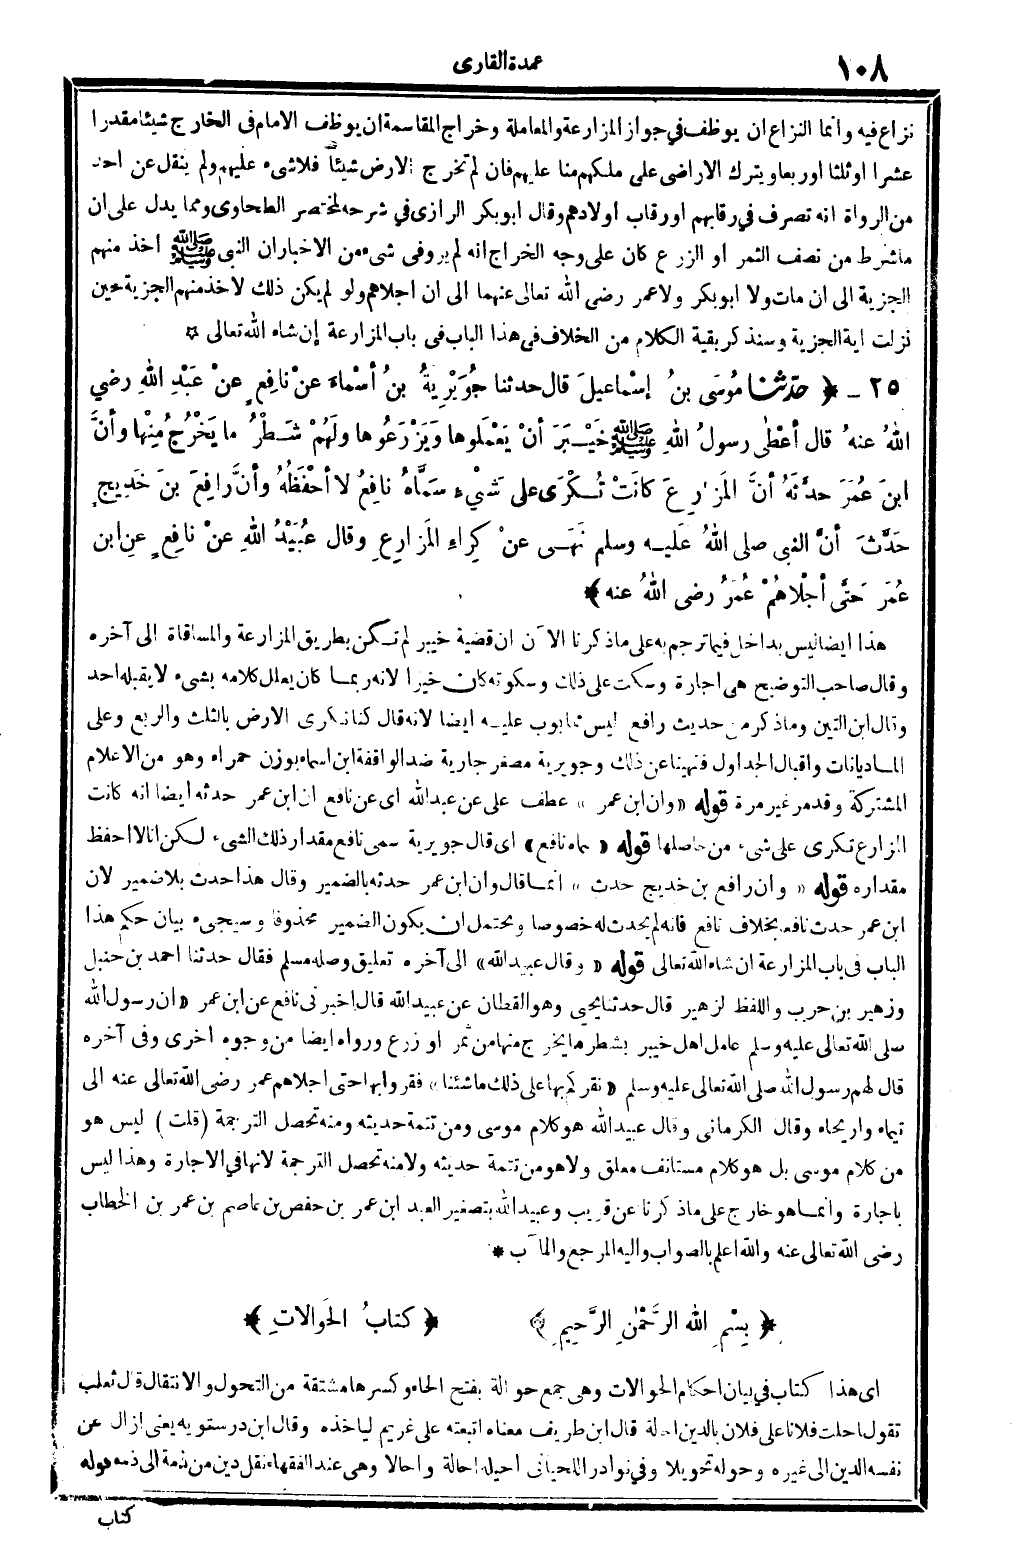 ١٠٨
عمدة القارى
نزاع فيه وانما النزاع ان يوظف في جواز المزارعة والمعاملة وخراج المقاسمة ان يوظف الامام فى الخارج شيئا مقدرا
عشرا او ثلثا او ربعا ويترك الاراضى على ملكهم منا عليهم فان لم تخرج الارض شيئا فلاشىء عليهم ولم ينقل عن احد
من الرواة انه تصرف في رقابهم او رقاب اولادهم وقال ابوبكر الرازى في شرحه لمختصر الطحاوى ومما يدل على ان
ماشرط من نصف الثمر او الزرع كان على وجه الخراج انه لم يرو فى شىء من الاخبار ان النبى ﷺ اخذ منهم
الجزية الى ان مات ولا ابوبكر ولا عمر رضى الله تعالى عنهما الى ان اجلاهم ولو لم يكن ذلك لاخذ منهم الجزية حين
نزلت اية الجزية وسنذكر بقية الكلام من الخلاف فى هذا الباب فى باب المزارعة إن شاه الله تعالى ☆
٢٥ ـ ﴿ حدّثنا مُوسَى بنُ إسْماعيلَ قال حدثنا جُوَيْرِيةُ بنُ أسْماءَ عنْ نافِعٍ عنْ عَبْدِ اللهِ رضي
اللهُ عنهُ قال أعْطٰى رسولُ اللهِ ﷺ خَيْبَرَ أنْ يَعْمَلوها ويَزْرَعُوها ولَهُمْ شَطْرُ ما يَخْرُجُ مِنْها وأنَّ
ابنَ عُمَرَ حدَّثَهُ أنَّ المَزارِعَ كانَتْ تُكْرَى على شَيْءٍ سَمَّاهُ نافِعٌ لا أحْفَظُهُ وأنَّ رافِعَ بنَ خَدِيجٍ
حَدَّثَ أنَّ النبى صلى اللهُ عَليه وسلم نَهَى عنْ كِراءِ المَزارِعِ وقال عُبَيْدُ اللهِ عنْ نافِعٍ عنِ ابن
عُمَرَ حَتَّى أجْلاهُمْ عُمَرُ رضى اللهُ عنه ﴾
هذا ايضا ليس بداخل فيما ترجم به على ماذكرنا الآن ان قضية خيبر لم تكن بطريق المزارعة والمساقاة الى آخره
وقال صاحب التوضيح هى اجارة وسكت على ذلك وسكوته كان خيرا لانه ربما كان يعلل كلامه بشىء لايقبله احد
وقال ابن التين وماذكر من حديث رافع ليس مما بوب عليه ايضا لانه قال كنا نكرى الارض بالثلث والربع وعلى
الماديانات واقبال الجداول فنهينا عن ذلك وجويرية مصغر جارية ضد الواقفة ابن اسماء بوزن حمراء وهو من الاعلام
المشتركة وقد مر غير مرة قوله «وان ابن عمر» عطف على عن عبدالله اى عن نافع ان ابن عمر حدثه ايضا انه كانت
المزارع تكرى على شىء من حاصلها قوله «سماه نافع» اى قال جويرية سمى نافع مقدار ذلك الشىء لكن انا لا احفظ
مقداره قوله «وان رافع بن خديج حدث» انما قال وان ابن عمر حدثه بالضمير وقال هذا حدث بلا ضمير لان
ابن عمر حدث نافعا بخلاف نافع فانه لم يحدث له خصوصا ويحتمل ان يكون الضمير محذوفا وسيجىء بيان حكم هذا
الباب فى باب المزارعة ان شاء الله تعالى قوله «وقال عبيد الله» الى آخره تعليق وصله مسلم فقال حدثنا احمد بن حنبل
وزهير بن حرب واللفظ لزهير قال حدثنا يحيي وهو القطان عن عبيد الله قال اخبرنى نافع عن ابن عمر «ان رسول الله
صلى الله تعالى عليه وسلم عامل اهل خيبر بشطر ما يخرج منها من ثمر او زرع ورواه ايضا من وجوه اخرى وفى آخره
قال لهم رسول الله صلى الله تعالى عليه وسلم «نقركم بها على ذلك ماشئنا» فقروا بها حتى اجلاهم عمر رضى الله تعالى عنه الى
تيماء واريحاء وقال الكرمانى وقال عبيد الله هو كلام موسى ومن تتمة حديثه ومنه تحصل الترجمة (قلت) ليس هو
من كلام موسى بل هو كلام مستانف معلق ولا هو من تتمة حديثه ولا منه تحصل الترجمة لانها في الاجارة وهذا ليس
باجارة وانما هو خارج على ماذكرنا عن قريب وعبيد الله بتصغير العبد ابن عمر بن حفص بن عاصم بن عمر بن الخطاب
رضى الله تعالى عنه والله اعلم بالصواب واليه المرجع والمآب *
﴿ بِسْمِ اللهِ الرَّحْمٰنِ الرَّحِيمِ ﴾ ﴿ كتابُ الحَوالاتِ ﴾
اى هذا كتاب في بيان احكام الحوالات وهى جمع حوالة بفتح الحاء وكسرها مشتقة من التحول والانتقال قال ثعلب
تقول احلت فلانا على فلان بالدين احالة قال ابن طريف معناه اتبعته على غريم لياخذه وقال ابن درستويه يعنى ازال عن
نفسه الدين الى غيره وحوله تحويلا وفي نوادر اللحيانى احيله احالة واحالا وهى عند الفقهاء نقل دين من ذمة الى ذمة قوله
كتاب